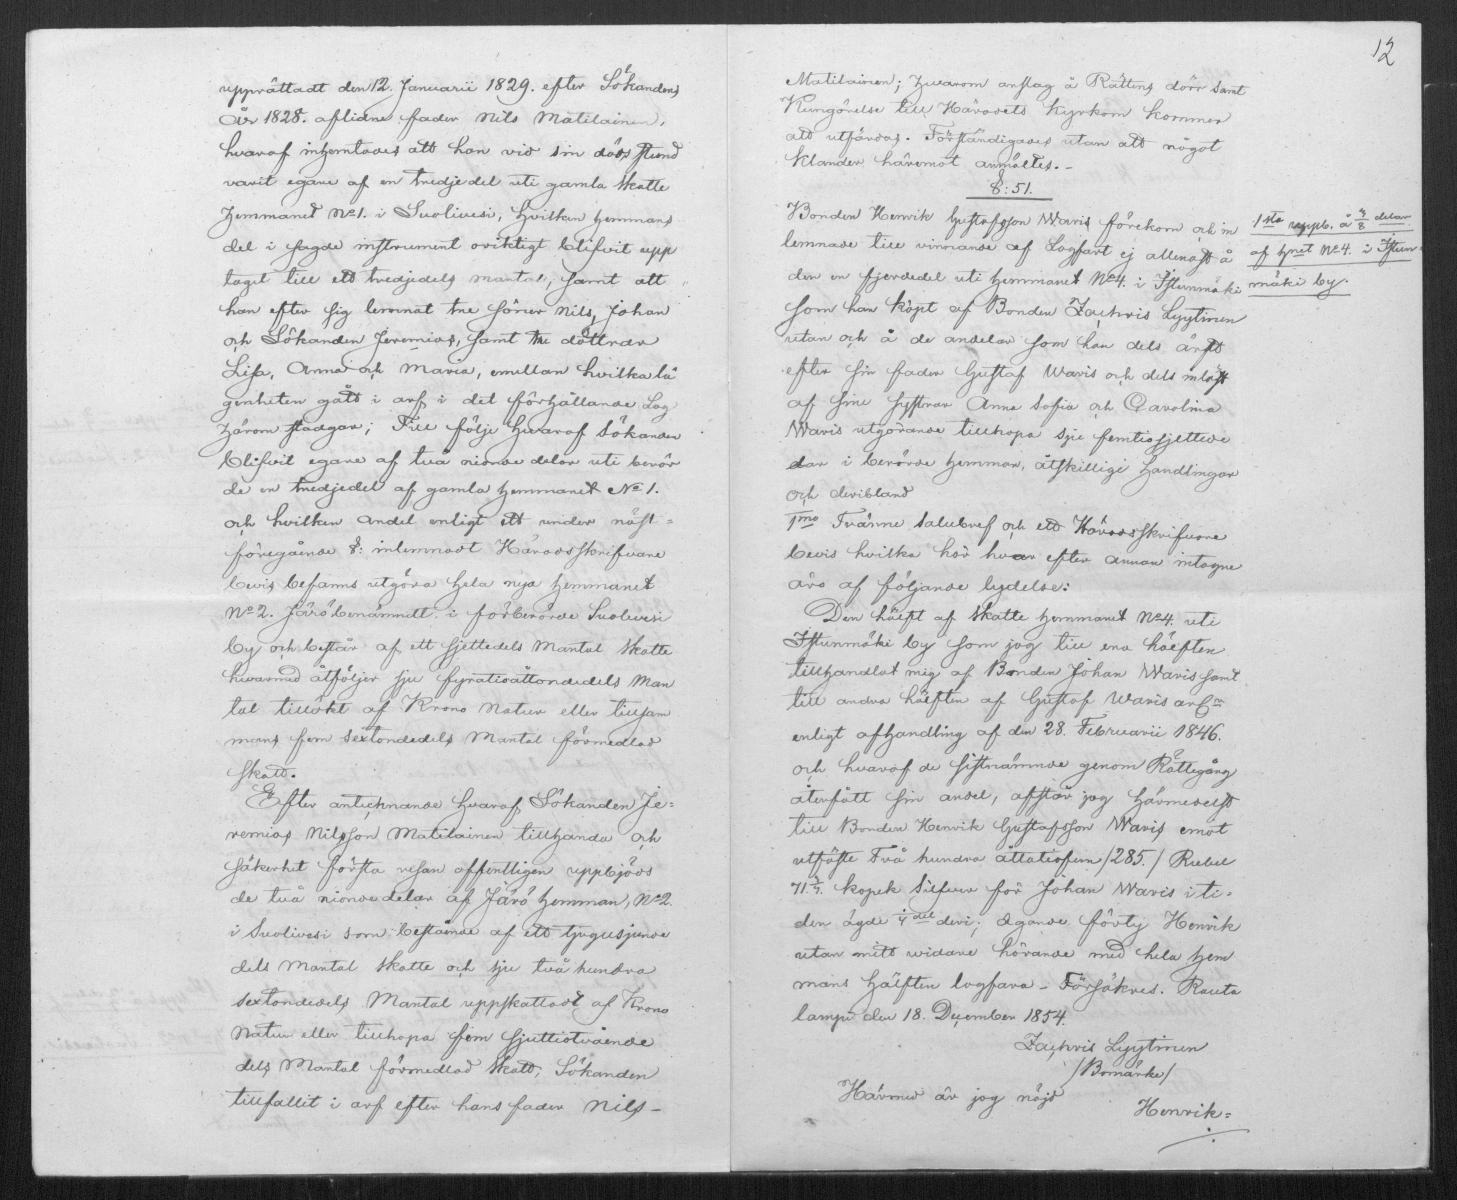 upprättadt den 12. Januarii 1829. efter Sökandens
år 1828. aflidne fader Nils Matilainen,
hvaraf inhemtades att han vid sin döds stund
varit egare af en tredjedel uti gamla skatte
hemmanet No 1. i Suolivesi, hvilken hemmans
del i sagde instrument oriktigt blifvit upp
taget till ett tredjedels mantal, samt att
han efter sig lemnat tre söner Nils, Johan
och Sökanden Jeremias, samt tre döttrar
Lisa, Anna och Maria, emellan hvilka lä
genheten gått i arf i det förhållande Lag
härom stadgar; Till följe hvaraf Sökanden
blifvit egare af två nionde delar uti berör
de en tredjedel af gamla hemmanet No 1.
och hvilken andel enligt ett under näst=
föregående §: inlemnadt Häradsskrifvare
bevis befanns utgöra hela nya hemmanet
No 2. Järö benämndt i förberörde Suolivesi
by och består af ett sjettedels Mantal skatte
hvarmed åtföljer sju fyratioåttondedels Man
tal tillökt af Krono Natur eller tillsam
mans fem sextondedels Mantal förmedlad
skatt.
Efter antecknande hvaraf Sökanden Je=
remias Nilsson Matilainen tillhanda och
säkerhet första resan offentligen uppbjöds
de två nionde delar af Järö hemman, No 2.
i Suolivesi som bestående af ett tjugusjunde
dels Mantal skatte och sju två hundra
sextondedels Mantal uppskattadt af Krono
Natur eller tillhopa fem sjuttiotvående
dels Mantal förmedlad skatt, Sökanden
tillfallit i arf efter hans fader Nils
12
Matilainen; hvarom anslag å Rättens dörr samt
Kungörelse till Häradets kyrkom kommer
att utfärdas. Förständigades utan att något
klander häremot anmältes.
§: 51.
Bonden Henrik Gustafsson Waris förekom och in
lemnade till vinnande af Lagfart ej allenast å
den en fjerdedel uti hemmanet No 4. i Istunmäki
som han köpt af Bonden Zachris Lyytinen
utan och å de andelar som han dels ärft
efter sin fader Gustaf Waris och dels inlöst
af sine systrar Anna Sofia och Carolina
Waris utgörande tillhopa sju femtiosjettede
lar i berörde hemman, åtskillige handlingar
och deribland
1mo Tvänne Salubref och ett Häradsskrifvare
bevis hvilka här hvar efter annan intagne
äro af följande lydelse:
1sta uppb. å 3/8 delar
af hnet No 4. i Istun
mäki by.
Den hälft af skatte hemmanet No 4. uti
Istunmäki by som jag till ena hälften
tillhandlat mig af Bonden Johan Waris samt
till andra hälften af Gustaf Waris
enligt afhandling af den 28. Februarii 1846.
och hvaraf de sistnämnde genom Rättegång
återfått sin andel, afstår jag härmedelst
till Bonden Henrik Gustafsson Waris emot
utfäste Två hundra åttatiofem /285./ Rubel
71 3/7. kopek Silfver för Johan Waris i ti=
den ägde 1/4 del deri; ägande förty Henrik
utan mitt widare hörande med hela hem
mans hälften lagfara - Försäkres. Rauta
lampi den 18. December 1854.
Zachris Lyytinen
/Bomärke/
Härmed är jag nöjd
Henrik=